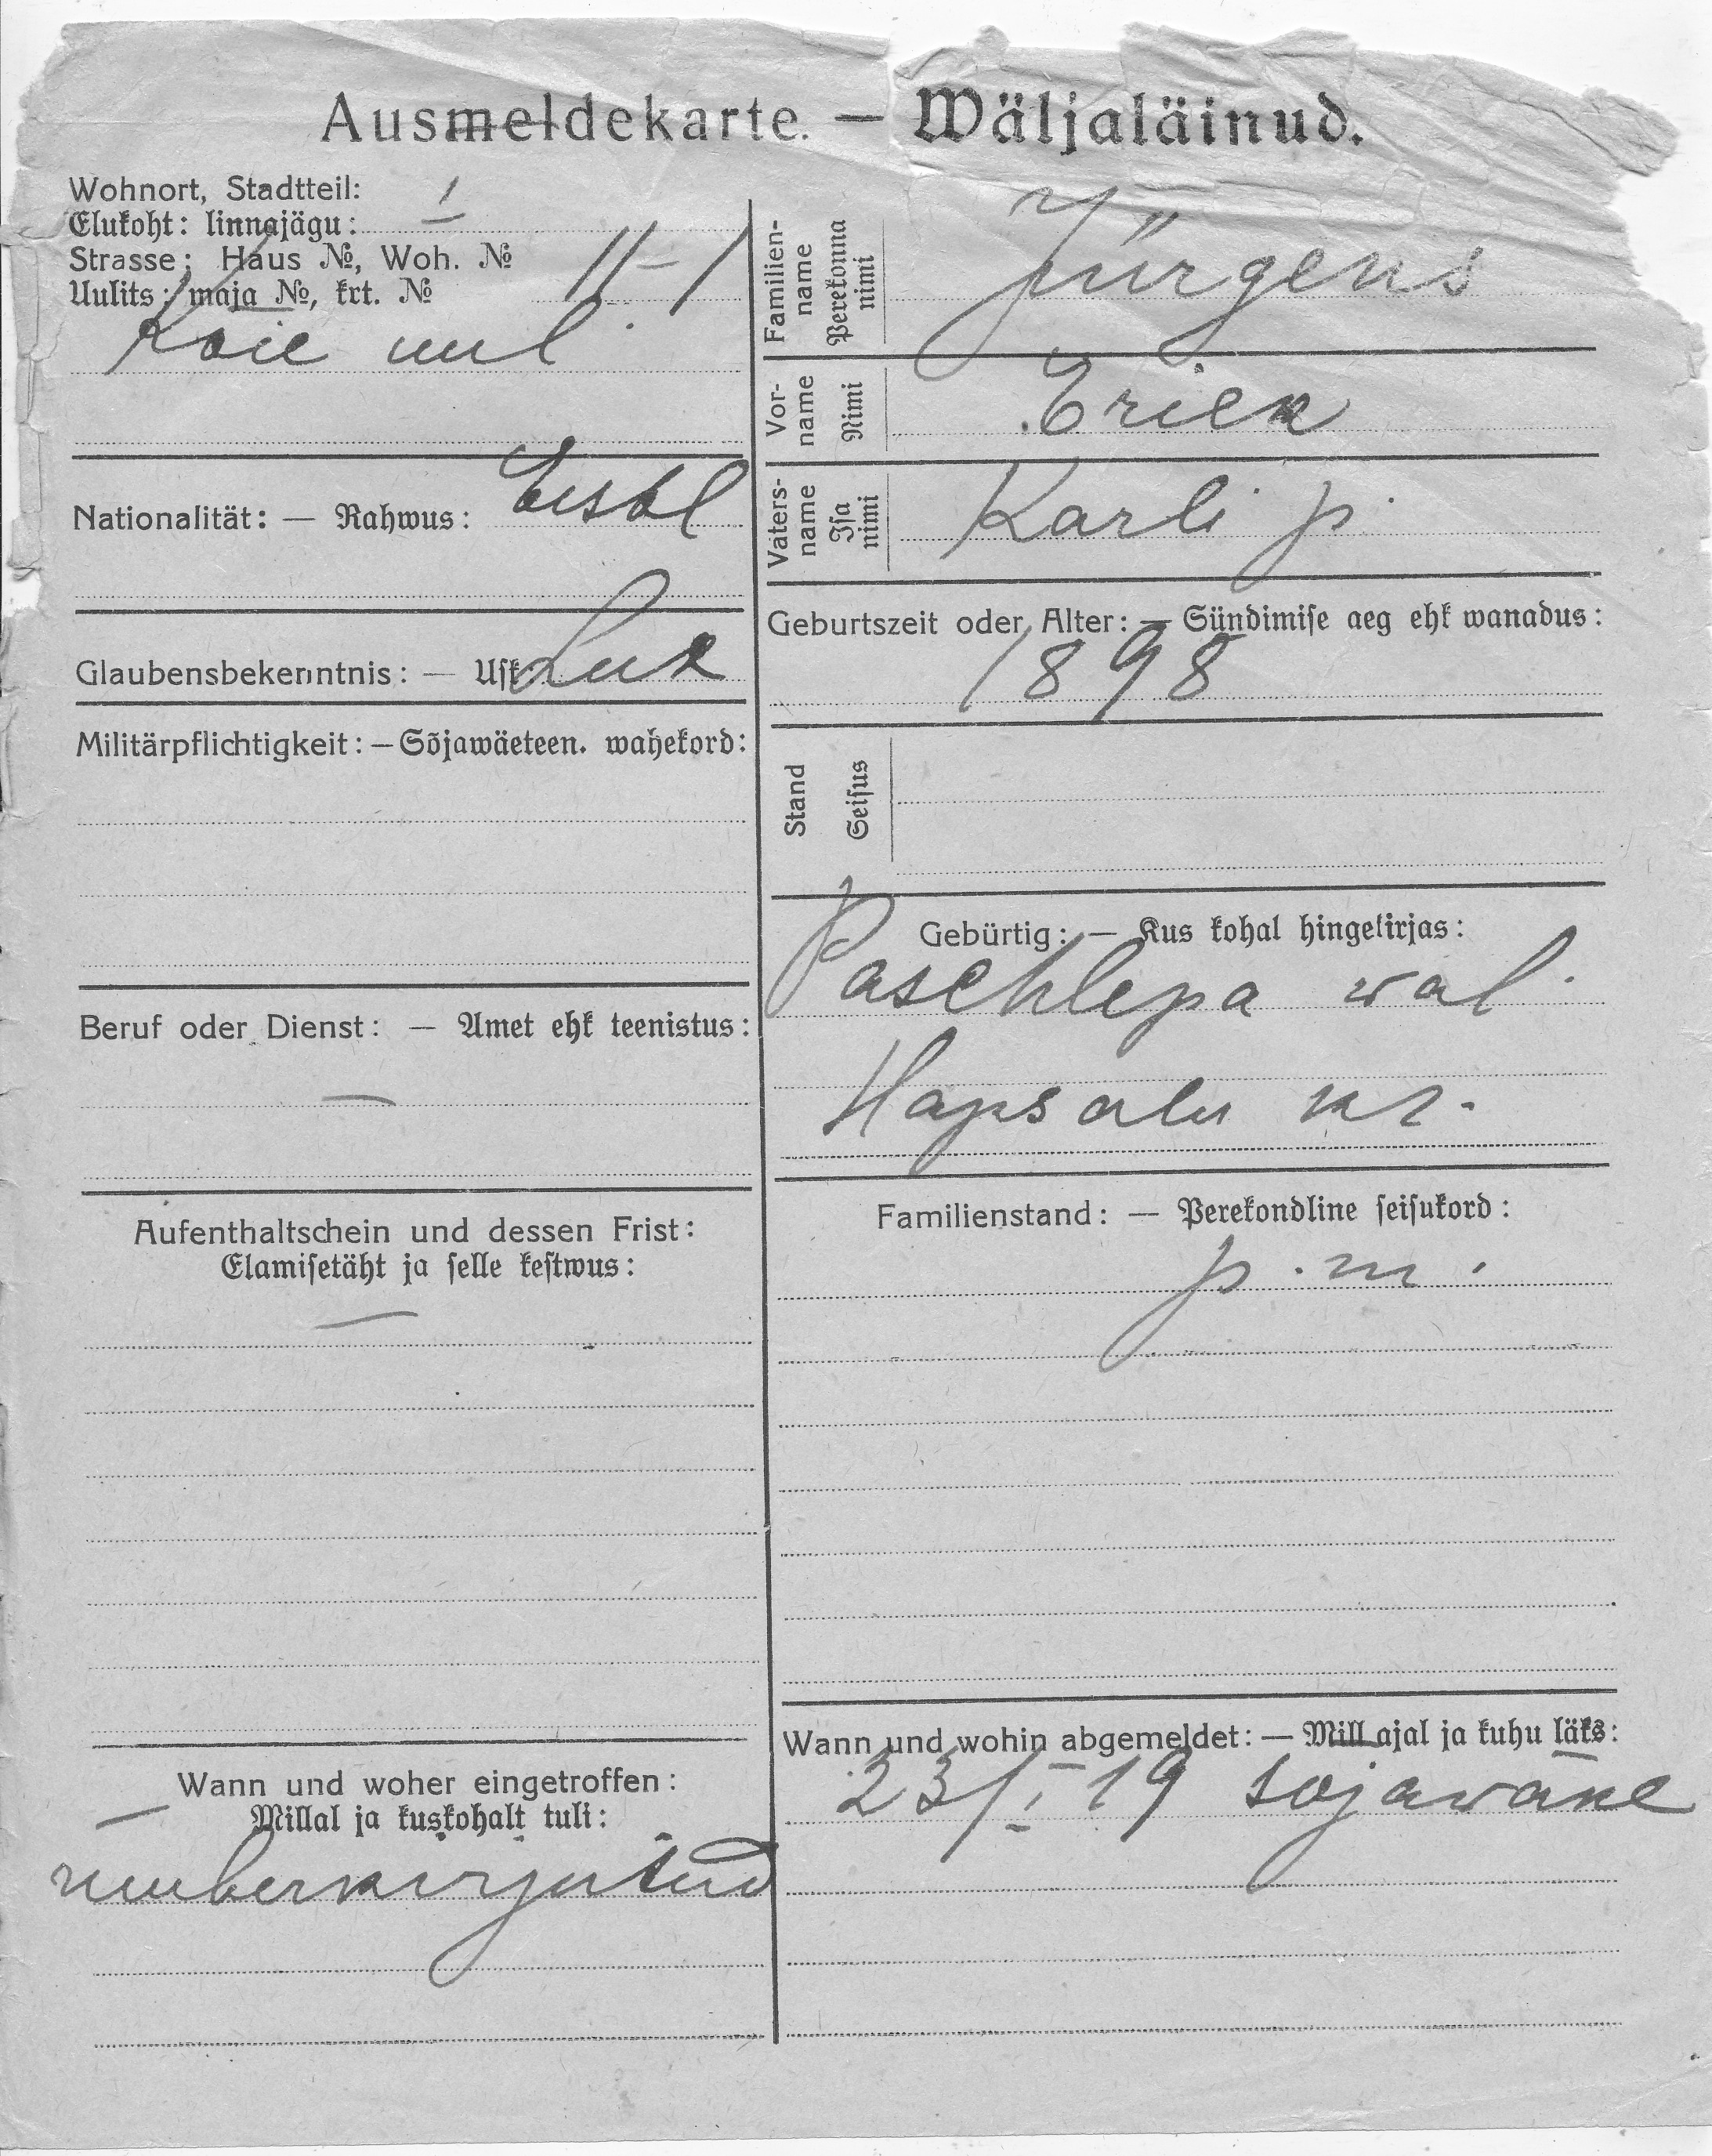 Ausmeldekarte. — Wäljaläinud.
Wohnort, Stadtteil:
Elukoht: linnajägu: I
Strasse: Haus №, Woh. №
Uulits: maja №, krt. № 11-1
Koie uul.
Nationalität: — Rahwus: Eestl
Glaubensbekenntnis: — Usk:
Militärpflichtigkeit: — Sõjawäeteen. wahekord:
Beruf oder Dienst: — Amet ehk teenistus:
—
Aufenthaltschein und dessen Frist:
Elamisetäht ja selle kestwus:
—
Wann und woher eingetroffen:
— Millal ja kuskohalt tuli:
ümberkirjutud
Familien-
name
Perekonna
nimi
Jürgens
Vor-
name
Nimi
Erick
Vaters-
name
Isa
nimi
Karli p.
Geburtszeit oder Alter: — Sündimise aeg ehk wanadus:
1898
Stand
Seisus
Gebürtig: — Kus kohal hingekirjas:
Paschlepa wal.
Hapsalu kr.
Familienstand: — Perekondline seisukord:
p. m.
Wann und wohin abgemeldet: — Mill ajal ja kuhu läks:
23/I 19 sojawäke